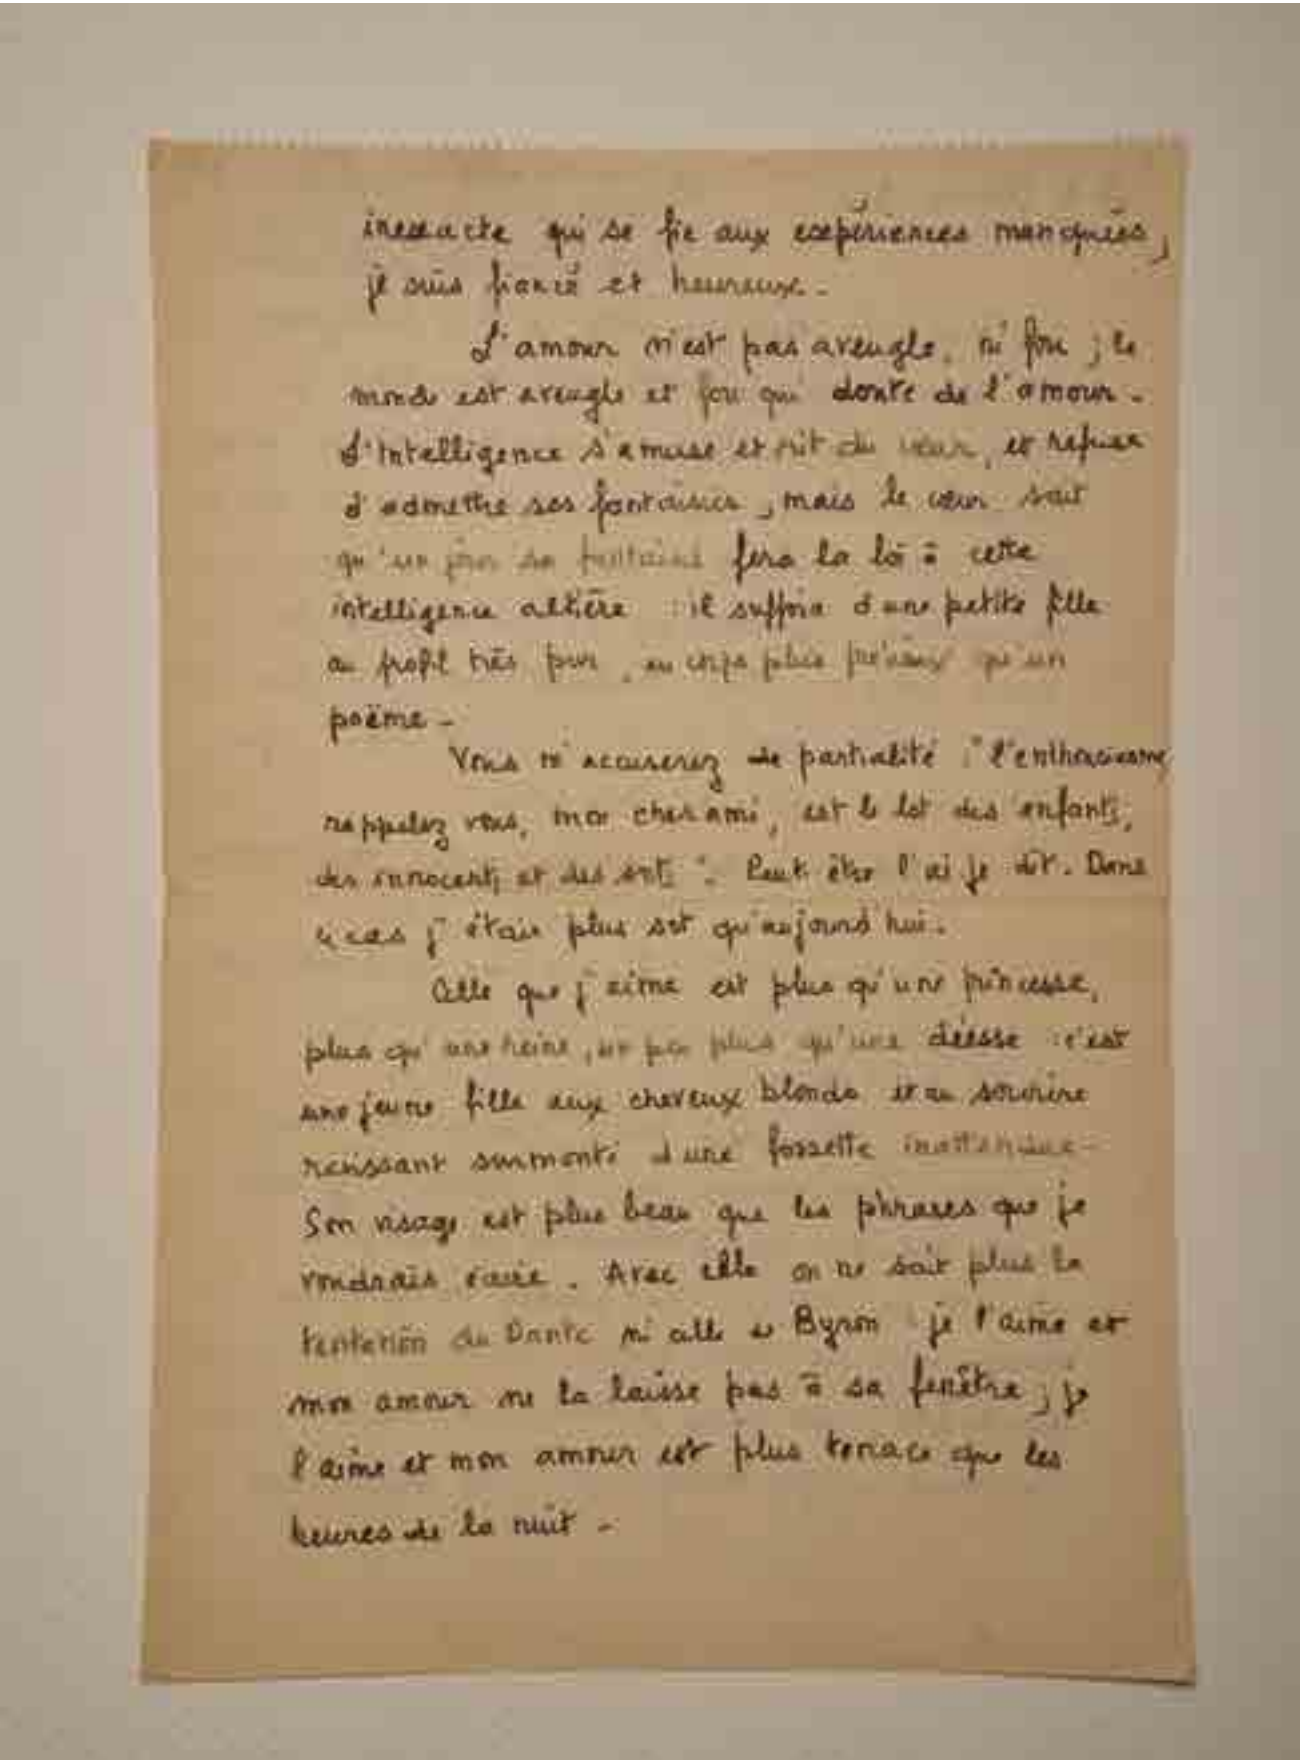 inexacte qui se fie aux expériences manquées,
je suis fiancé et heureux.
L'amour n'est pas aveugle, ni fou ; le
monde est aveugle et fou qui doute de l'amour.
L'intelligence s'amuse et rit du cœur, et refuse
d'admettre ses fantaisies, mais le cœur sait
qu'un jour sa fantaisie fera la loi à cette
intelligence altière : il suffira d'une petite fille
au profil très pur, au corps plus précieux qu'un
poëme -
Vous m'accuserez de partialité : "l'enthousiasme
rappelez vous, mon cher ami, est le lot des enfants,
des innocents et des sots". Peut être l'ai je dit. Dans
ce cas j'étais plus sot qu'aujourd'hui.
Celle que j'aime est plus qu'une princesse,
plus qu'une reine, un peu plus qu'une déesse : c'est
une jeune fille aux cheveux blonds et au sourire
ravissant surmonté d'une fossette inattendue -
Son visage est plus beau que les phrases que je
voudrais écrire. Avec elle on ne sait plus la
tentation du Dante ni celle de Byron je l'aime et
mon amour ne la laisse pas à sa fenêtre ; je
l'aime et mon amour est plus tenace que les
heures de la nuit -